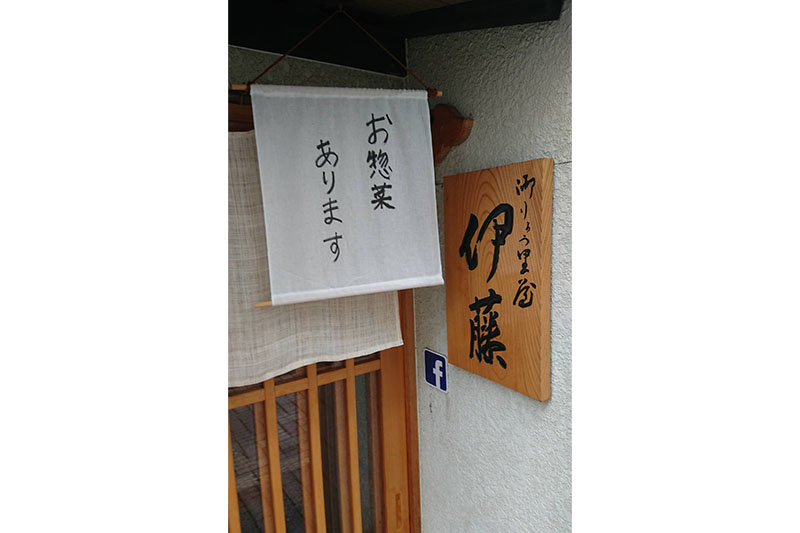 お惣菜
あります
御りょう里屋
伊藤
f